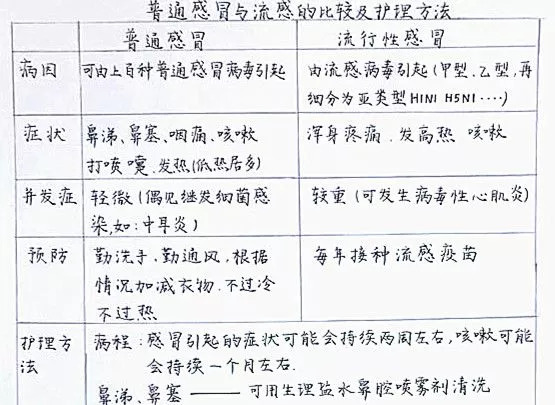 普通感冒与流感的比较及护理方法
普通感冒
流行性感冒
病因
可由上百种普通感冒病毒引起
由流感病毒引起(甲型、乙型,再
细分为亚类型H1N1 H5N1····)
症状
鼻涕、鼻塞、咽痛、咳嗽
打喷嚏、发热(低热居多)
浑身疼痛、发高热 咳嗽
并发症
轻微(偶见继发细菌感
染,如:中耳炎)
较重(可发生病毒性心肌炎)
预防
勤洗手、勤通风,根据
情况加减衣物、不过冷
不过热
每年接种流感疫苗
护理方
法
病程:感冒引起的症状可能会持续两周左右,咳嗽可能
会持续一个月左右.
鼻涕、鼻塞 —— 可用生理盐水鼻腔喷雾剂清洗